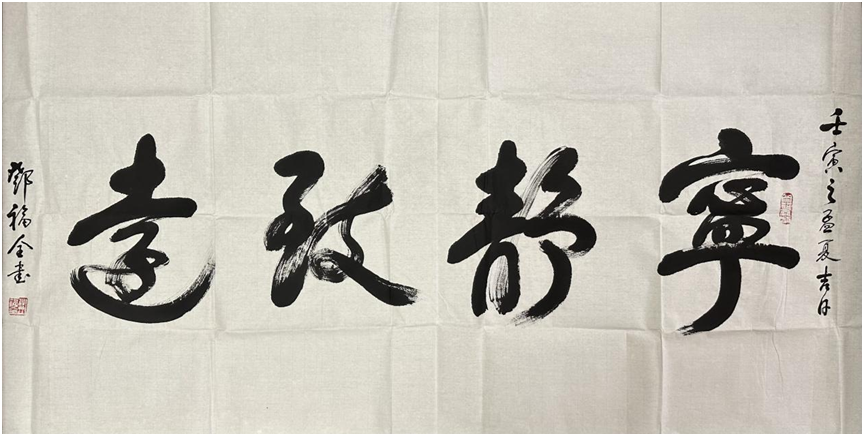 壬寅之孟夏吉日
寧靜致遠
鄧福全書